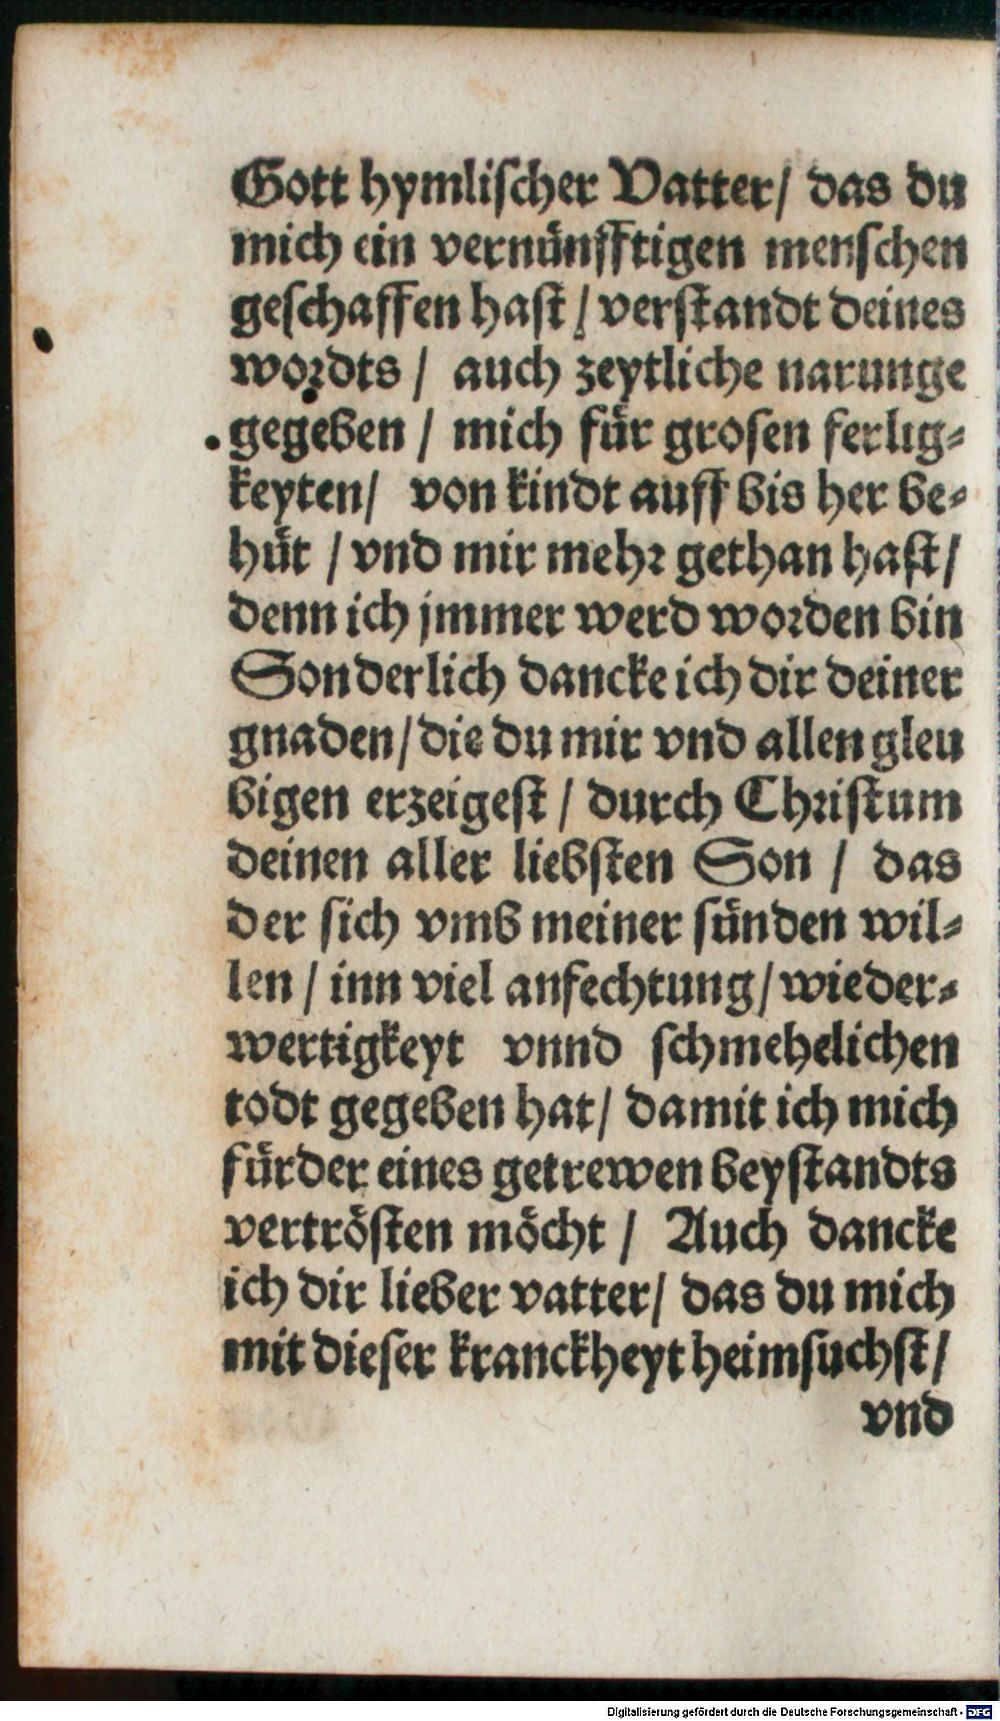 Gott hymlischer Vatter/ das du
mich ein vernünfftigen menschen
geschaffen hast / verstandt deines
wordts / auch zeytliche narunge
gegeben / mich für grosen ferlig⸗
keyten/ von kindt auff bis her be⸗
hüt / vnd mir mehr gethan hast/
denn ich jmmer werd worden bin
Sonderlich dancke ich dir deiner
gnaden/ die du mir vnd allen gleu
bigen erzeigest / durch Christum
deinen aller liebsten Son / das
der sich vmb meiner sünden wil⸗
len / inn viel anfechtung/ wieder⸗
wertigkeyt vnnd schmehelichen
todt gegeben hat/ damit ich mich
fürder eines getrewen beystandts
vertrösten möcht / Auch dancke
ich dir lieber vatter/ das du mich
mit dieser kranckheyt heimsuchst/
vnd
Digitalisierung gefördert durch die Deutsche Forschungsgemeinschaft - DFG